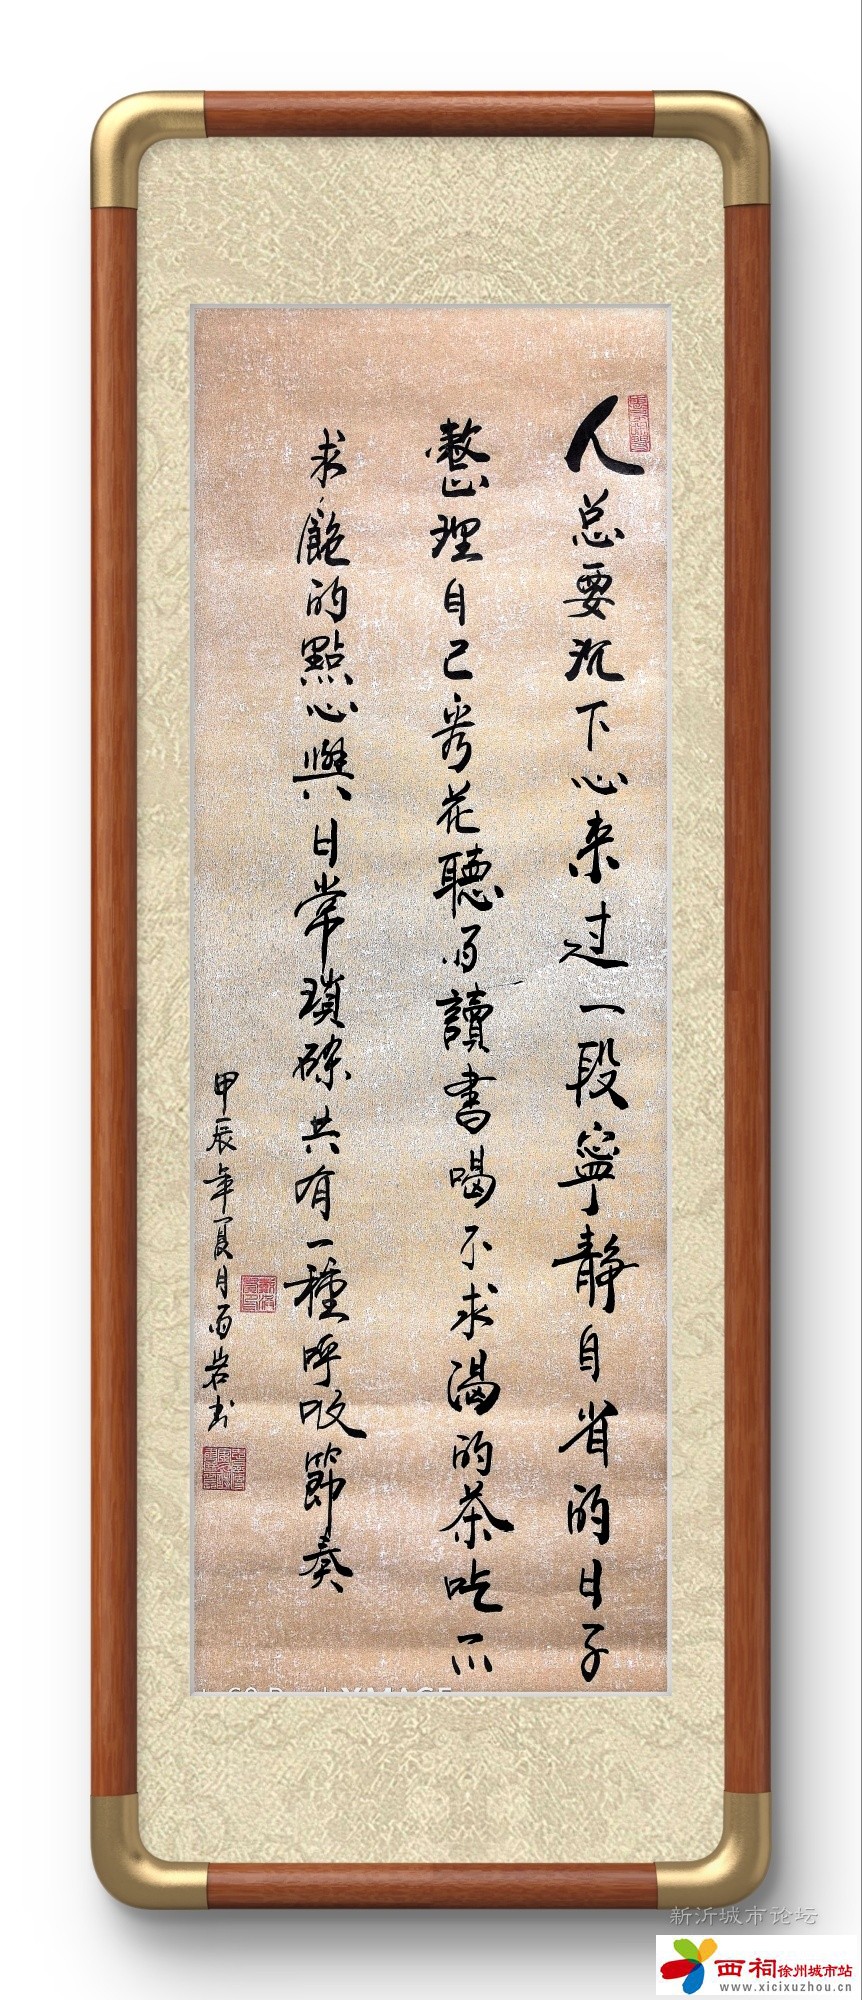 人总要沉下心来过一段寧静自省的日子
整理自己看花聽雨讀書喝不求渴的茶吃不
求飽的點心與日常瑣碎共有一種呼吸節奏
甲辰年夏月雨岩书
XMAGE
新沂城市论坛
西祠徐州城市站
www.xicixuzhou.cn